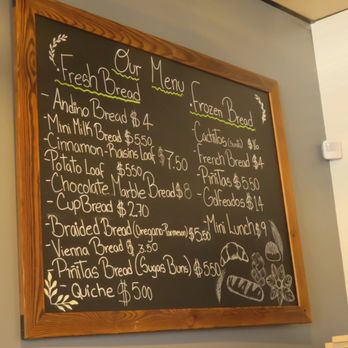 Our Menu
.Fresh Bread
- Andino Bread $4
- Mini Milk Bread $5.50
- Cinnamon-Raisins Loaf $7.50
- Potato Loaf $5.50
- Chocolate Marble Bread $8
- Cup Bread $2.70
- Braided Bread (Oregano-Parmesan) $5.50
- Vienna Bread $3.50
- Piñitas Bread (Sugar Buns) $5.50
- Quiche $5.00
.Frozen Bread
- Cachitos $16
- French Bread $4
- Piñitas $5.50
- Golfeados $14
- Mini Lunch $9